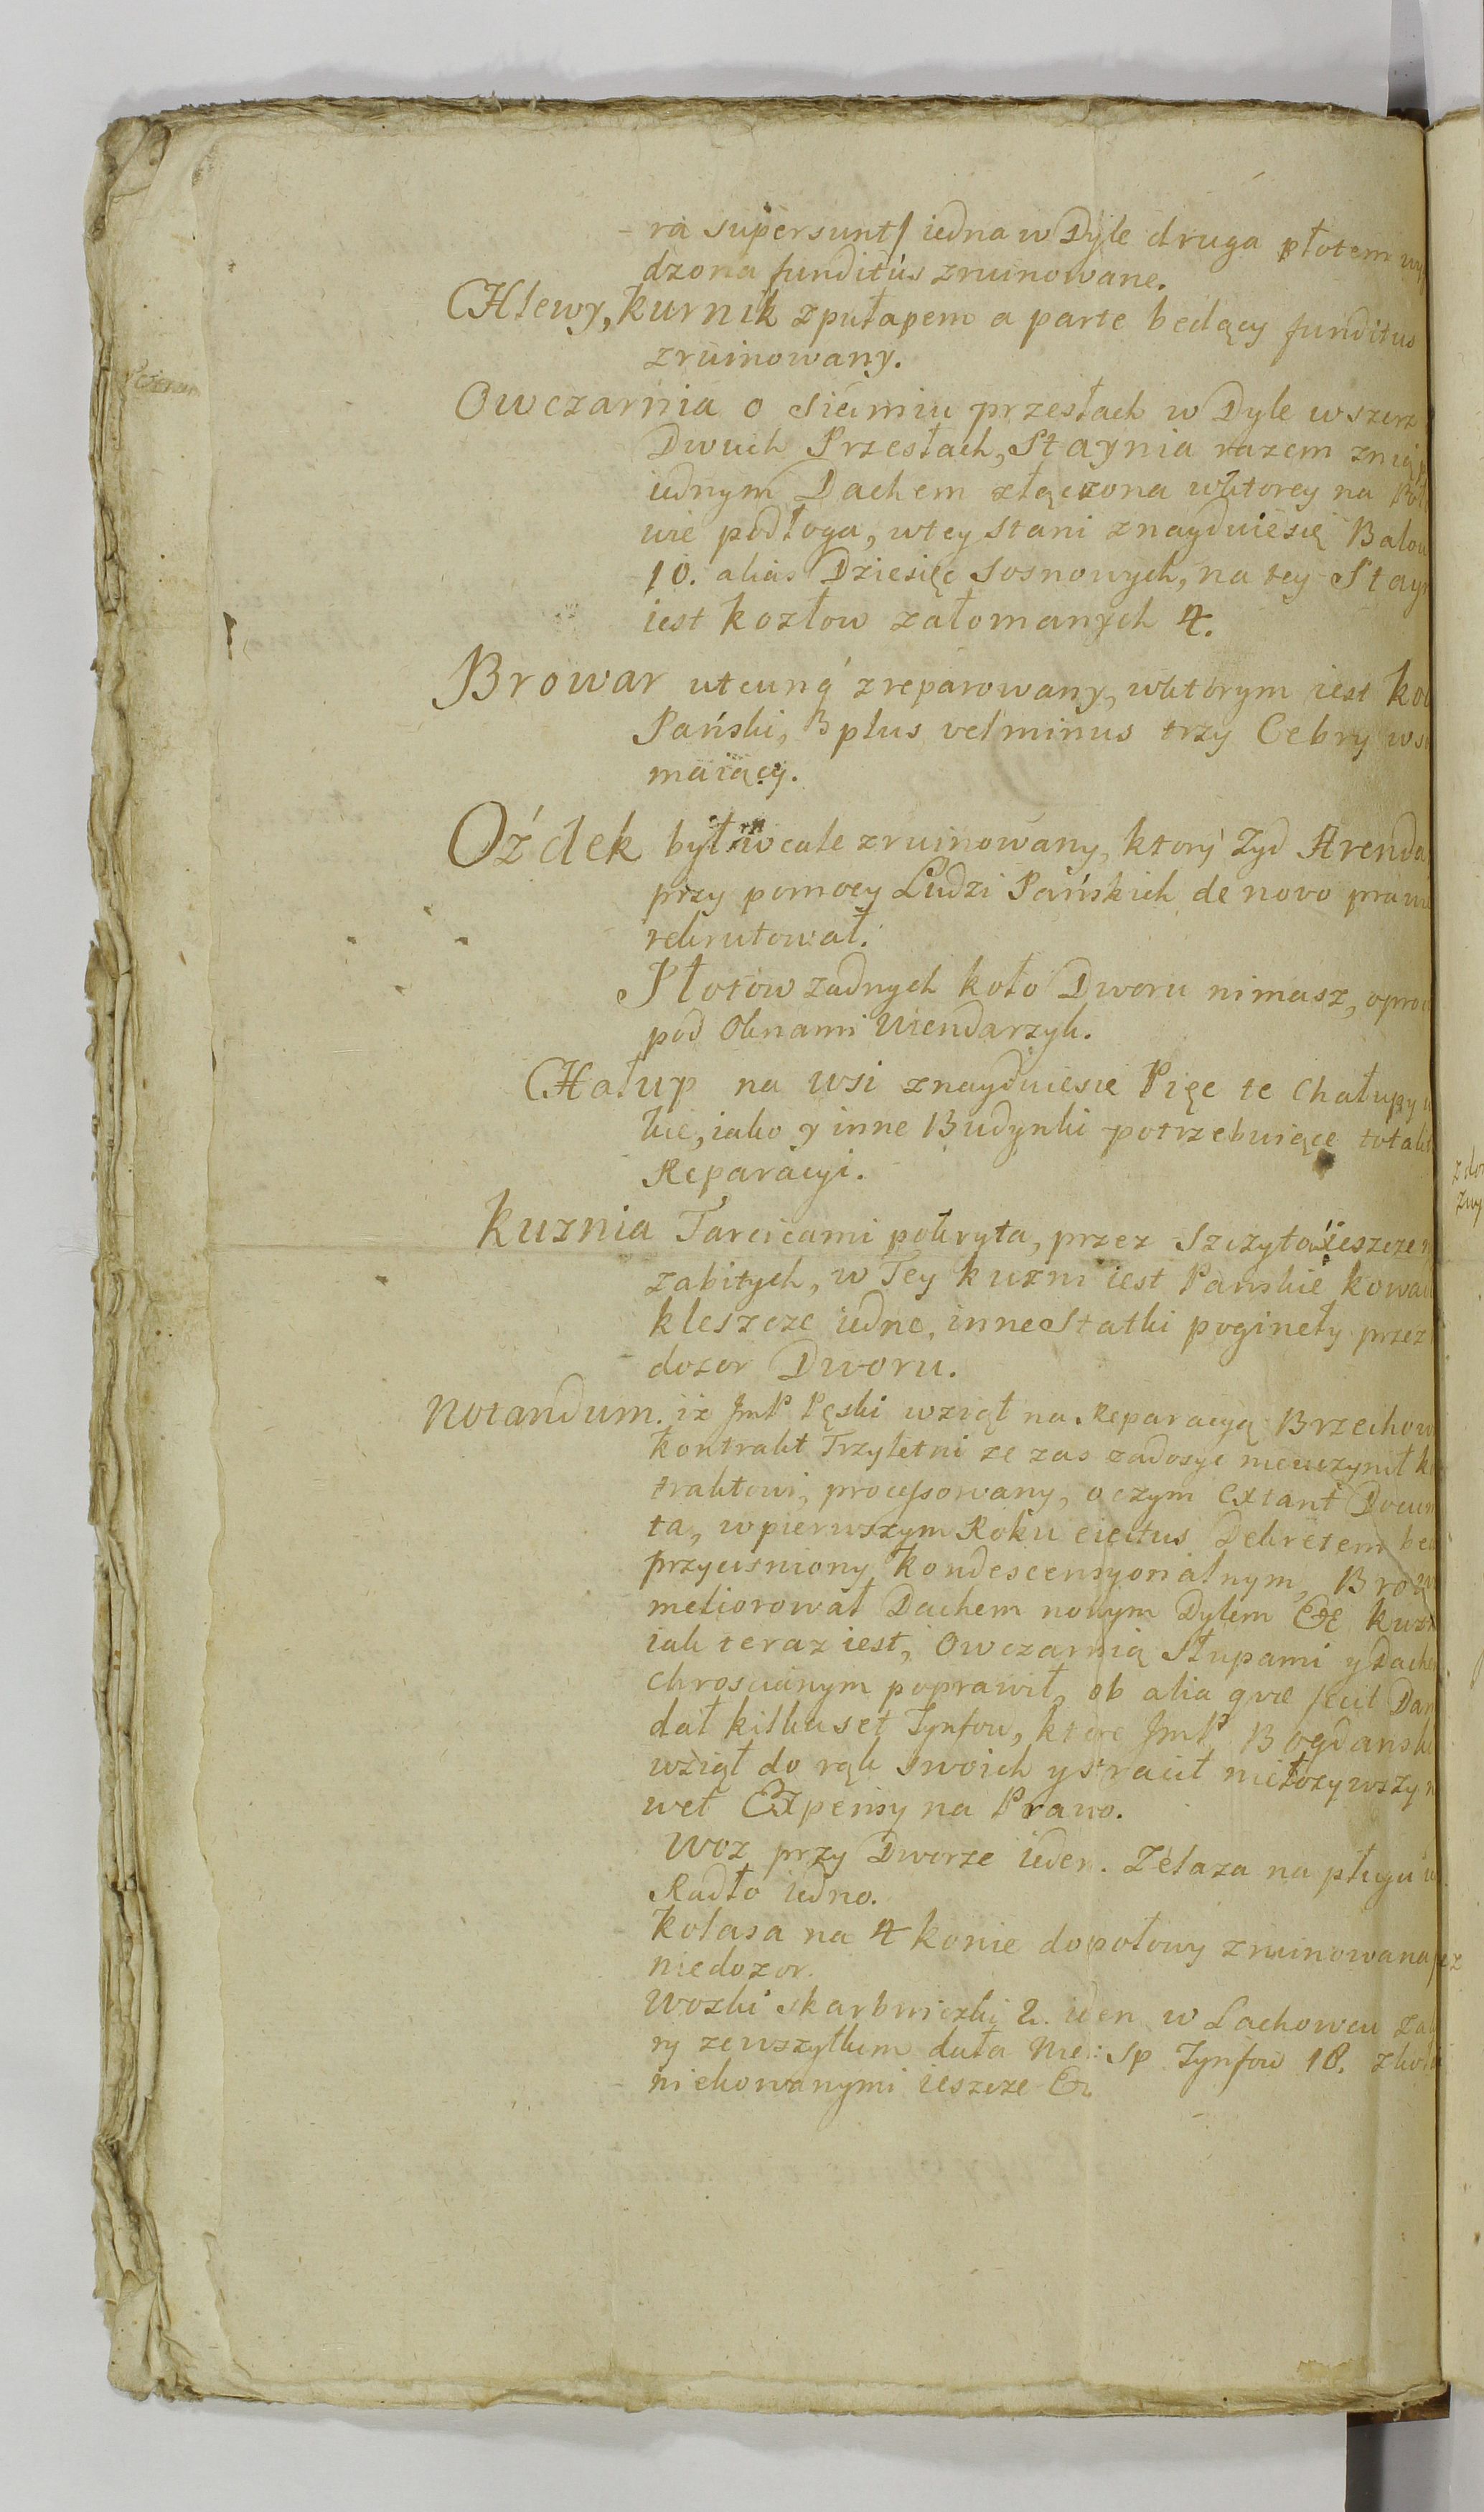 ra supersunt/ iedna w Dyle druga płotem
dzona funditus zruinowane.
CHlewy, kurnik z pułapem a parte będący funditus
zruinowany.
Owczarnia o siedmiu przesłach w Dyle wszerz
Dwuch Przesłach, Staynia razem z nią
iednym Dachem złączona w ktorey na
podłoga, w tey stani znayduie się
10. alias Dziesięc Sosnowych, na tey
iest kozłow załomanych 4.
Browar utcunq zreparowany, w ktorym iest
Pański, 3 plus vel minus trzy Cebry
maiący.
Oźdek był wcale zruinowany, ktory Zyd
przy pomocy Ludzi Pańskich de novo
rekrutował.
Płotow zadnych koło Dworu nimasz,
pod Oknami Wiendarzyk.
CHałup na wsi znayduie sie Pięc te Chałupy
kie, iako y inne Budynki potrzebuiące
Reparacyi.
Kuznia Tarcicami pokryta, przez Szczytow ieszcze
zabitych, w Tey kuzni iest Panskie
kleszcze iedne, inne Statki pogineły przez
dozor Dworu.
Notandum. iz JmP Pęski wziął na Reparacyą
kontrakt Trzyletni ze zas zadosyc nieuczynił
traktowi, processowany, o czym Extant
ta, w pierwszym Roku eiectus Dekretem
przycisniony kondescensyonalnym,
meliorował Dachem nowym Dylem &c
iak teraz iest, Owczarnią Słupami y
chroscianym poprawił, ob alia quæ fecit
dał kilkaset Tynfow, ktore JmP
wziął do rąk swoich y stracił niełozywszy
wet Expensy na Prawo.
Woz przy Dworze ieden. Zelaza na pługu
Radło iedno.
kolasa na 4 konie do połowy zruinowana
niedozor.
Wozki skarbniczki 2. ieden w Lachowcu
ry ze wszytkim dała Sp Tynfow 18.
niekowanymi ieszcze &.